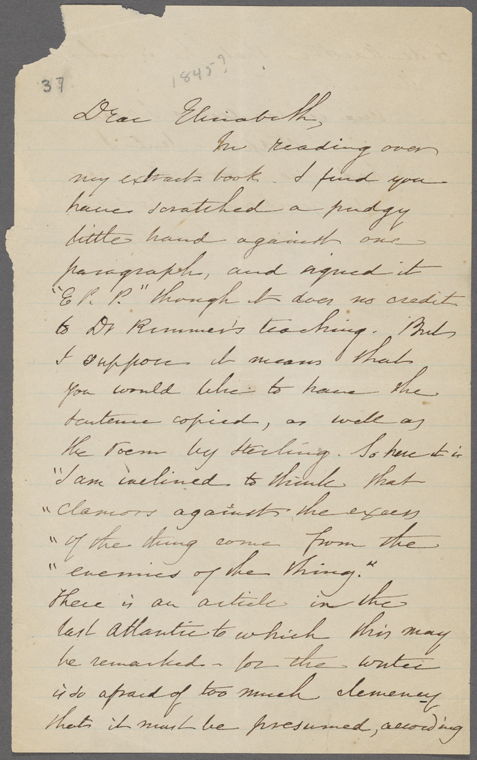 37
1845?
Dear Elizabeth,
In reading over
my extract-book I find you
have scratched a pudgy
little hand against one
paragraph, and signed it
"E. P. P." though it does no credit
to Dr Rimmer's teaching. But
I suppose it means that
you would like to have the
sentence copied, as well as
the Poem by Sterling. So here it is
"I am inclined to think that
"clamors against the excess
"of the thing come from the
"enemies of the thing."
There is an article in the
last Atlantic to which this may
be remarked - for the writer
is so afraid of too much clemency
that it must be presumed, according